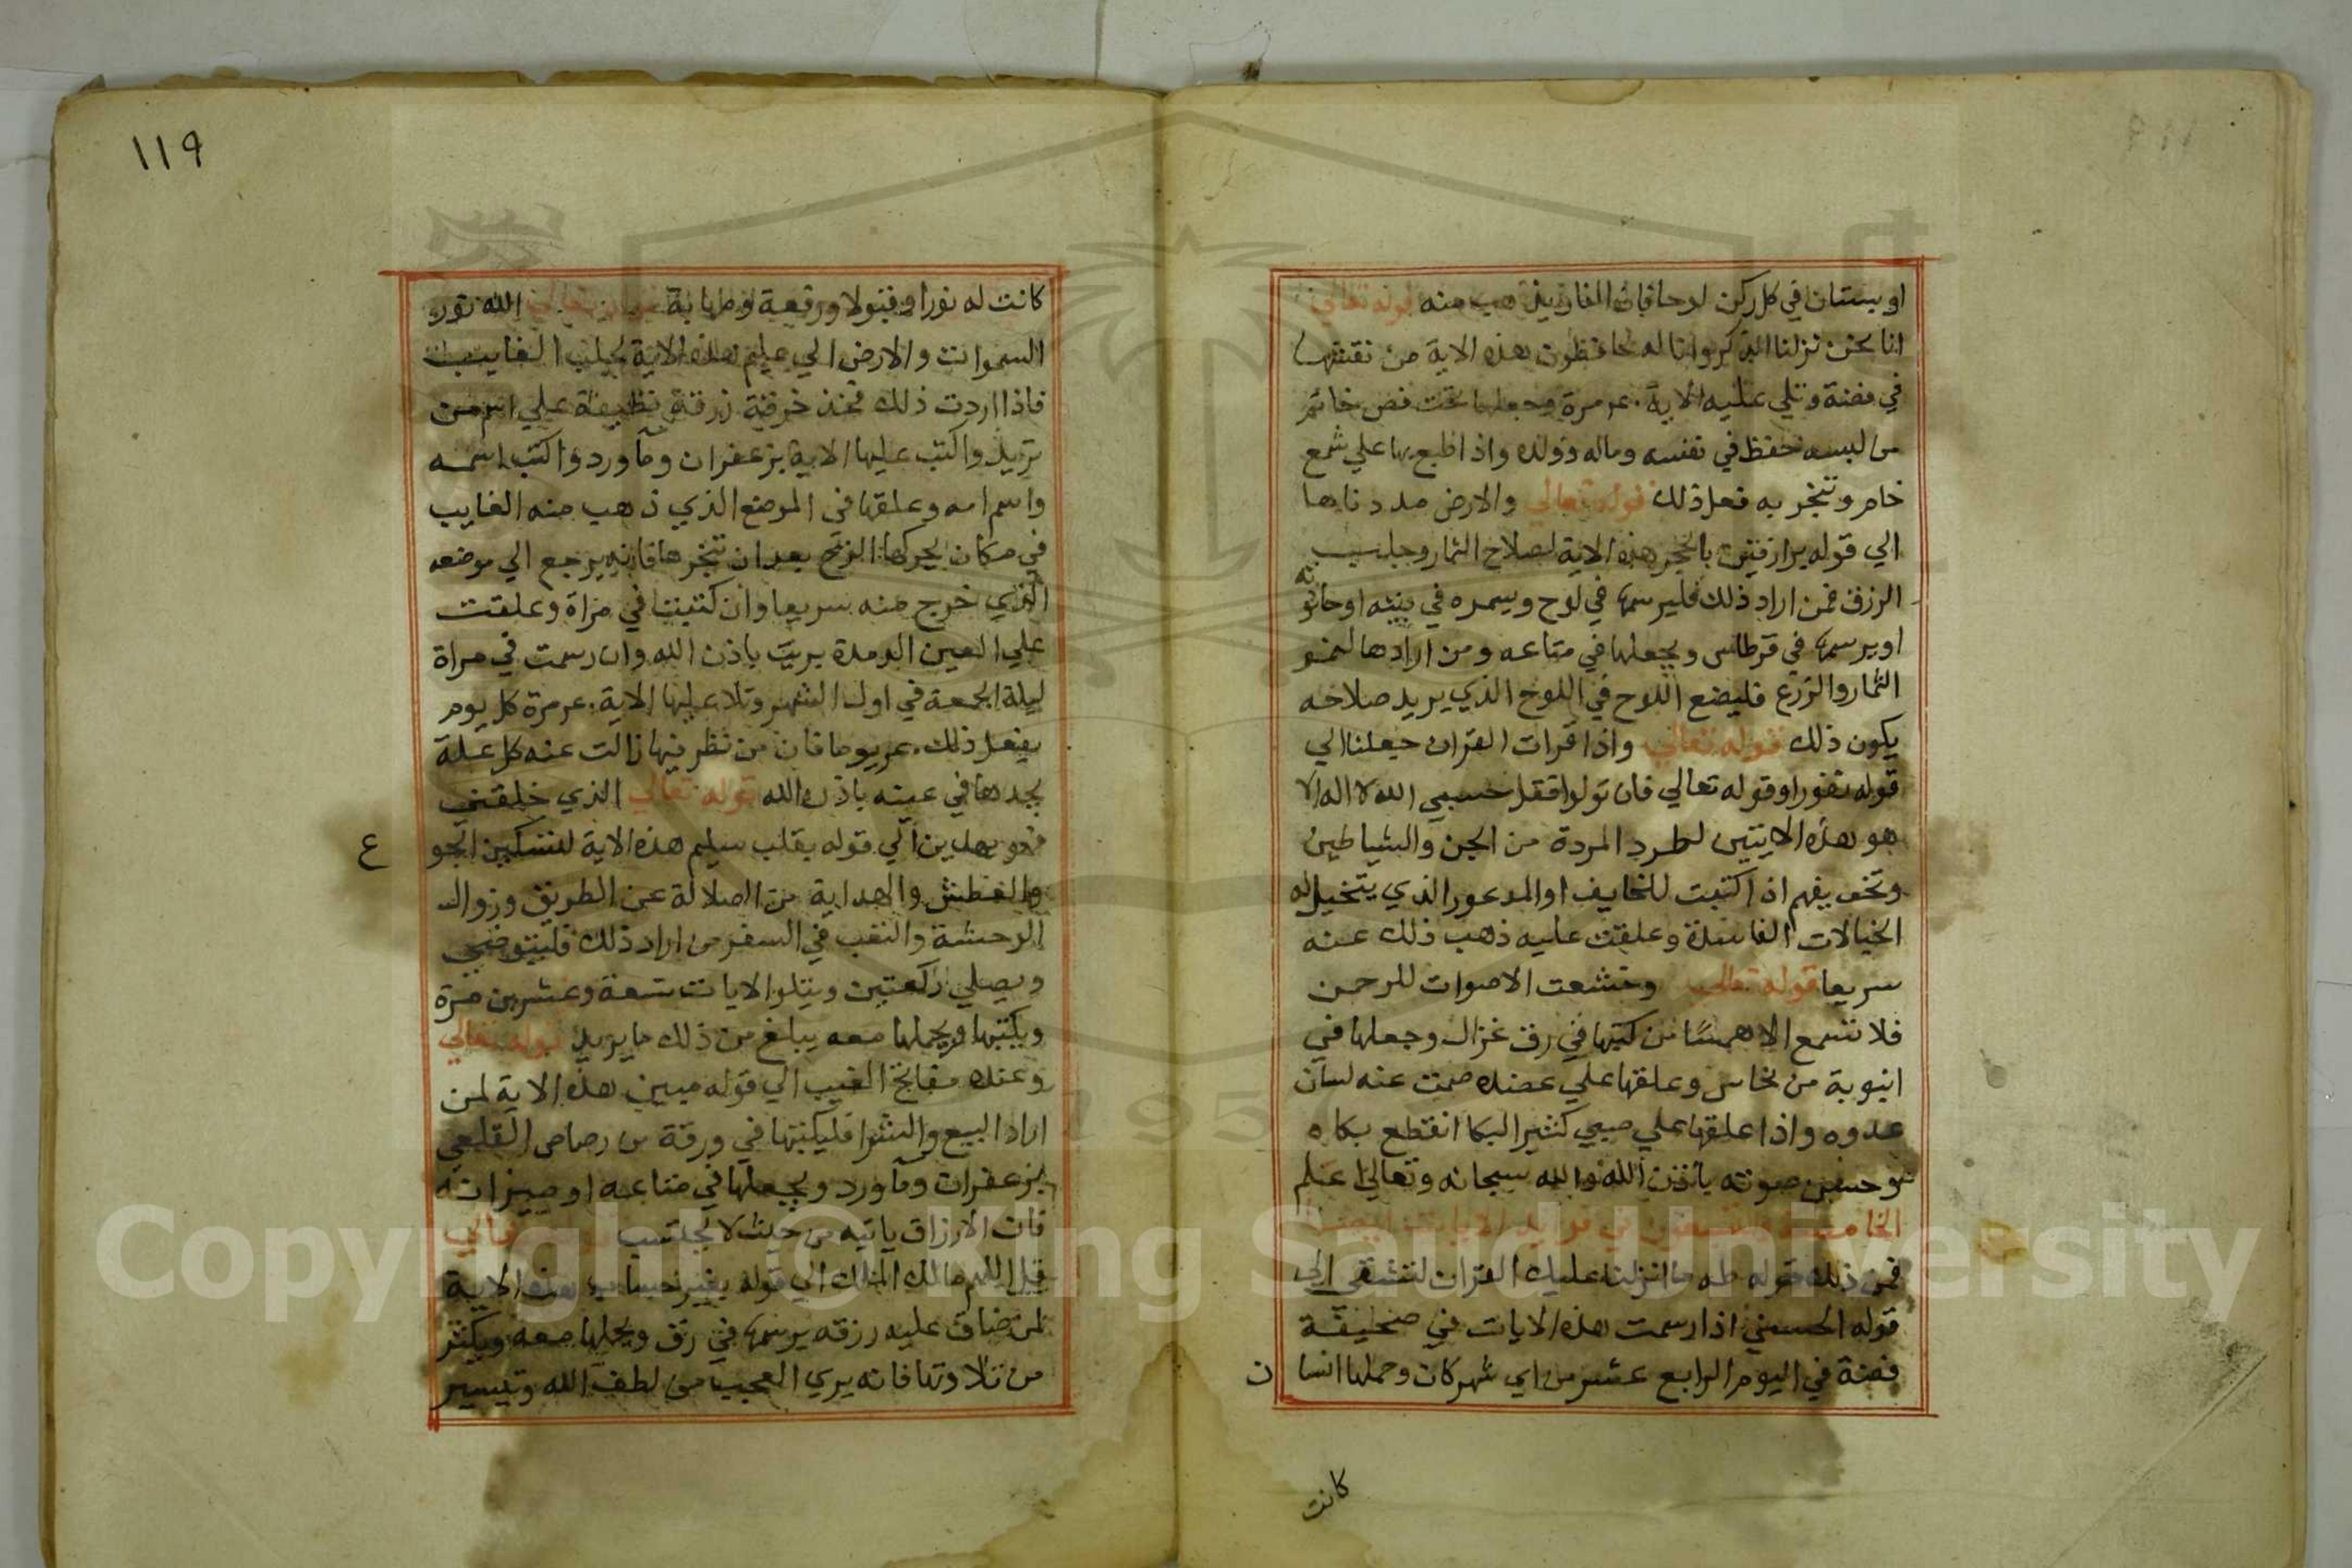 او بستان في كل ركن لوحا فان الفار يذهب منه قوله تعالي
انا نحن نزلنا الذكر وانا له لحافظون هذه الاية من نقشها
في فضة وتلي عليه الاية مرة وجعلها تحت فص خاتم
من لبسه حفظ في نفسه وماله وولده واذا طبع بها علي شمع
خام وتبخر به فعل ذلك قوله تعالي والارض مددناها
الي قوله برازقين بالحجر هذه الاية لصلاح الثمار وجلب
الرزق فمن اراد ذلك فليرسمها في لوح ويسمره في بيته او حانوته
او يرسمها في قرطاس ويجعلها في متاعه ومن ارادها لنمو
الثمار والزرع فليضع اللوح في اللوح الذي يريد صلاحه
يكون ذلك قوله تعالي واذا قرات القران جعلنا الي
قوله نفورا وقوله تعالي فان تولوا فقل حسبي الله لا اله الا
هو هذه الايتين لطرد المردة من الجن والشياطين
وتخويفهم اذا كتبت للخايف او المدعور الذي يتخيل له
الخيالات الفاسدة وعلقت عليه ذهب ذلك عنه
سريعا قوله تعالي وخشعت الاصوات للرحمن
فلا تسمع الا همسًا من كتبها في رق غزال وجعلها في
انبوبة من نحاس وعلقها علي عضده صمت عنه لسان
عدوه واذا علقها علي صبي كثير البكا انقطع بكاه
وحسن صوته باذن الله والله سبحانه وتعالي اعلم
فمن ذلك قوله طه ما انزلنا عليك القران لتشقي الي
قوله الحسني اذا رسمت هذه الايات في صحيفة
فضة في اليوم الرابع عشر من اي شهر كان وحملها انسان
كانت
١١٩
كانت له نورا وقبولا ورفعة ومهابة الله نور
السموات والارض الي عليم هذه الاية لجلب الغايب
فاذا اردت ذلك فخذ خرقة زرقة نظيفة علي اسم من
تريد واكتب عليها الاية بزعفران وماورد واكتب اسمه
واسم امه وعلقها في الموضع الذي ذهب منه الغايب
في مكان يحركها الريح بعد ان تبخرها فانه يرجع الي موضعه
الذي خرج منه سريعا وان كتبت في مراة وعلقت
علي العين الرمدة بريت باذن الله وان رسمت في مراة
ليلة الجمعة في اول الشهر وتلا عليها الاية مرة كل يوم
يفعل ذلك يوما فان من نظر فيها زالت عنه كل علة
يجدها في عينه باذن الله قوله تعالي الذي خلقني
فهو يهدين الي قوله بقلب سليم هذه الاية لتسكين الجوع
والعطش والهداية من الضلالة عن الطريق وزوال
الوحشة والتعب في السفر من اراد ذلك فليتوضي
ويصلي ركعتين ويتلو الايات تسعة وعشرين مرة
ويكتبها ويحملها معه يبلغ من ذلك ما يريد قوله تعالي
وعنده مفاتح الغيب الي قوله مبين هذه الاية لمن
اراد البيع والشرا فليكتبها في ورقة من رصاص القلعي
بزعفران وماورد ويجعلها في متاعه او ميزانه
فان الارزاق ياتيه من حيث لا يحتسب تعالي
قل اللهم مالك الملك الي قوله بغير حساب هذه الاية
لمن ضاق عليه رزقه يرسمها في رق ويحملها معه ويكثر
من تلاوتها فانه يري العجب من لطف الله وتيسير